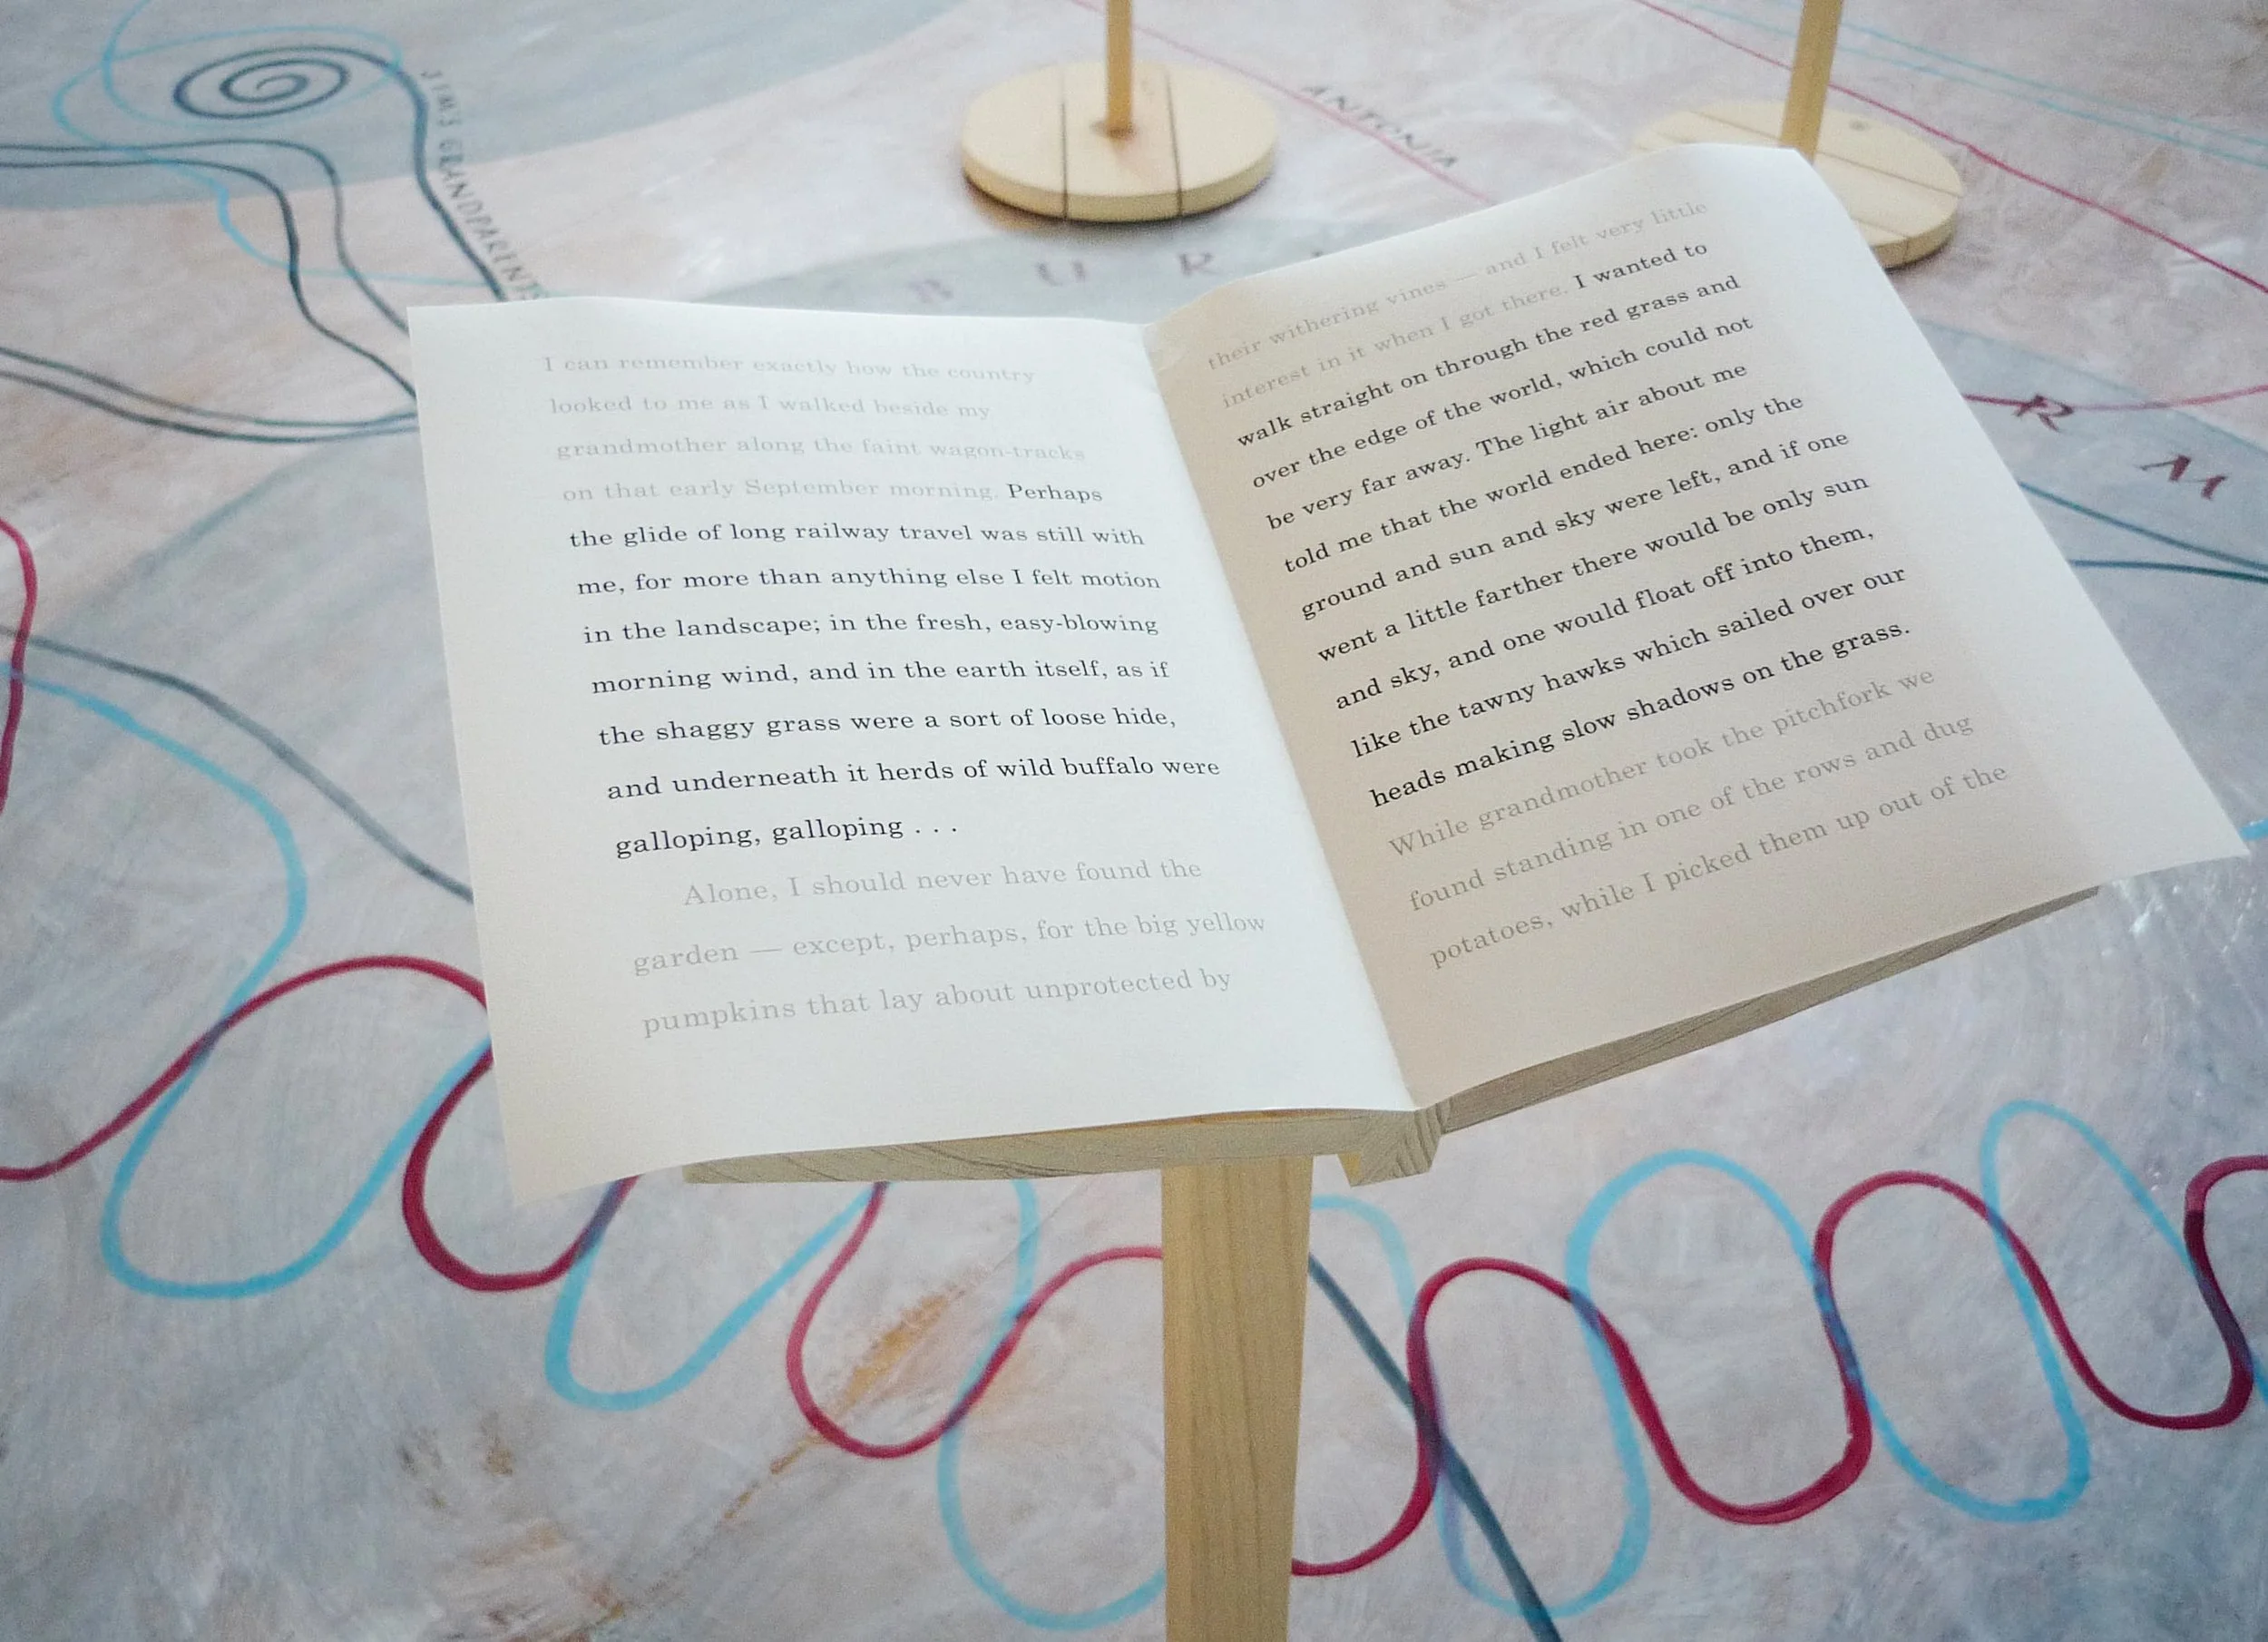 JIM'S GRANDPARENTS
ANTONIA
B U R
R M
I can remember exactly how the country
looked to me as I walked beside my
grandmother along the faint wagon-tracks
on that early September morning. Perhaps
the glide of long railway travel was still with
me, for more than anything else I felt motion
in the landscape; in the fresh, easy-blowing
morning wind, and in the earth itself, as if
the shaggy grass were a sort of loose hide,
and underneath it herds of wild buffalo were
galloping, galloping . . .
Alone, I should never have found the
garden — except, perhaps, for the big yellow
pumpkins that lay about unprotected by
their withering vines — and I felt very little
interest in it when I got there. I wanted to
walk straight on through the red grass and
over the edge of the world, which could not
be very far away. The light air about me
told me that the world ended here: only the
ground and sun and sky were left, and if one
went a little farther there would be only sun
and sky, and one would float off into them,
like the tawny hawks which sailed over our
heads making slow shadows on the grass.
While grandmother took the pitchfork we
found standing in one of the rows and dug
potatoes, while I picked them up out of the